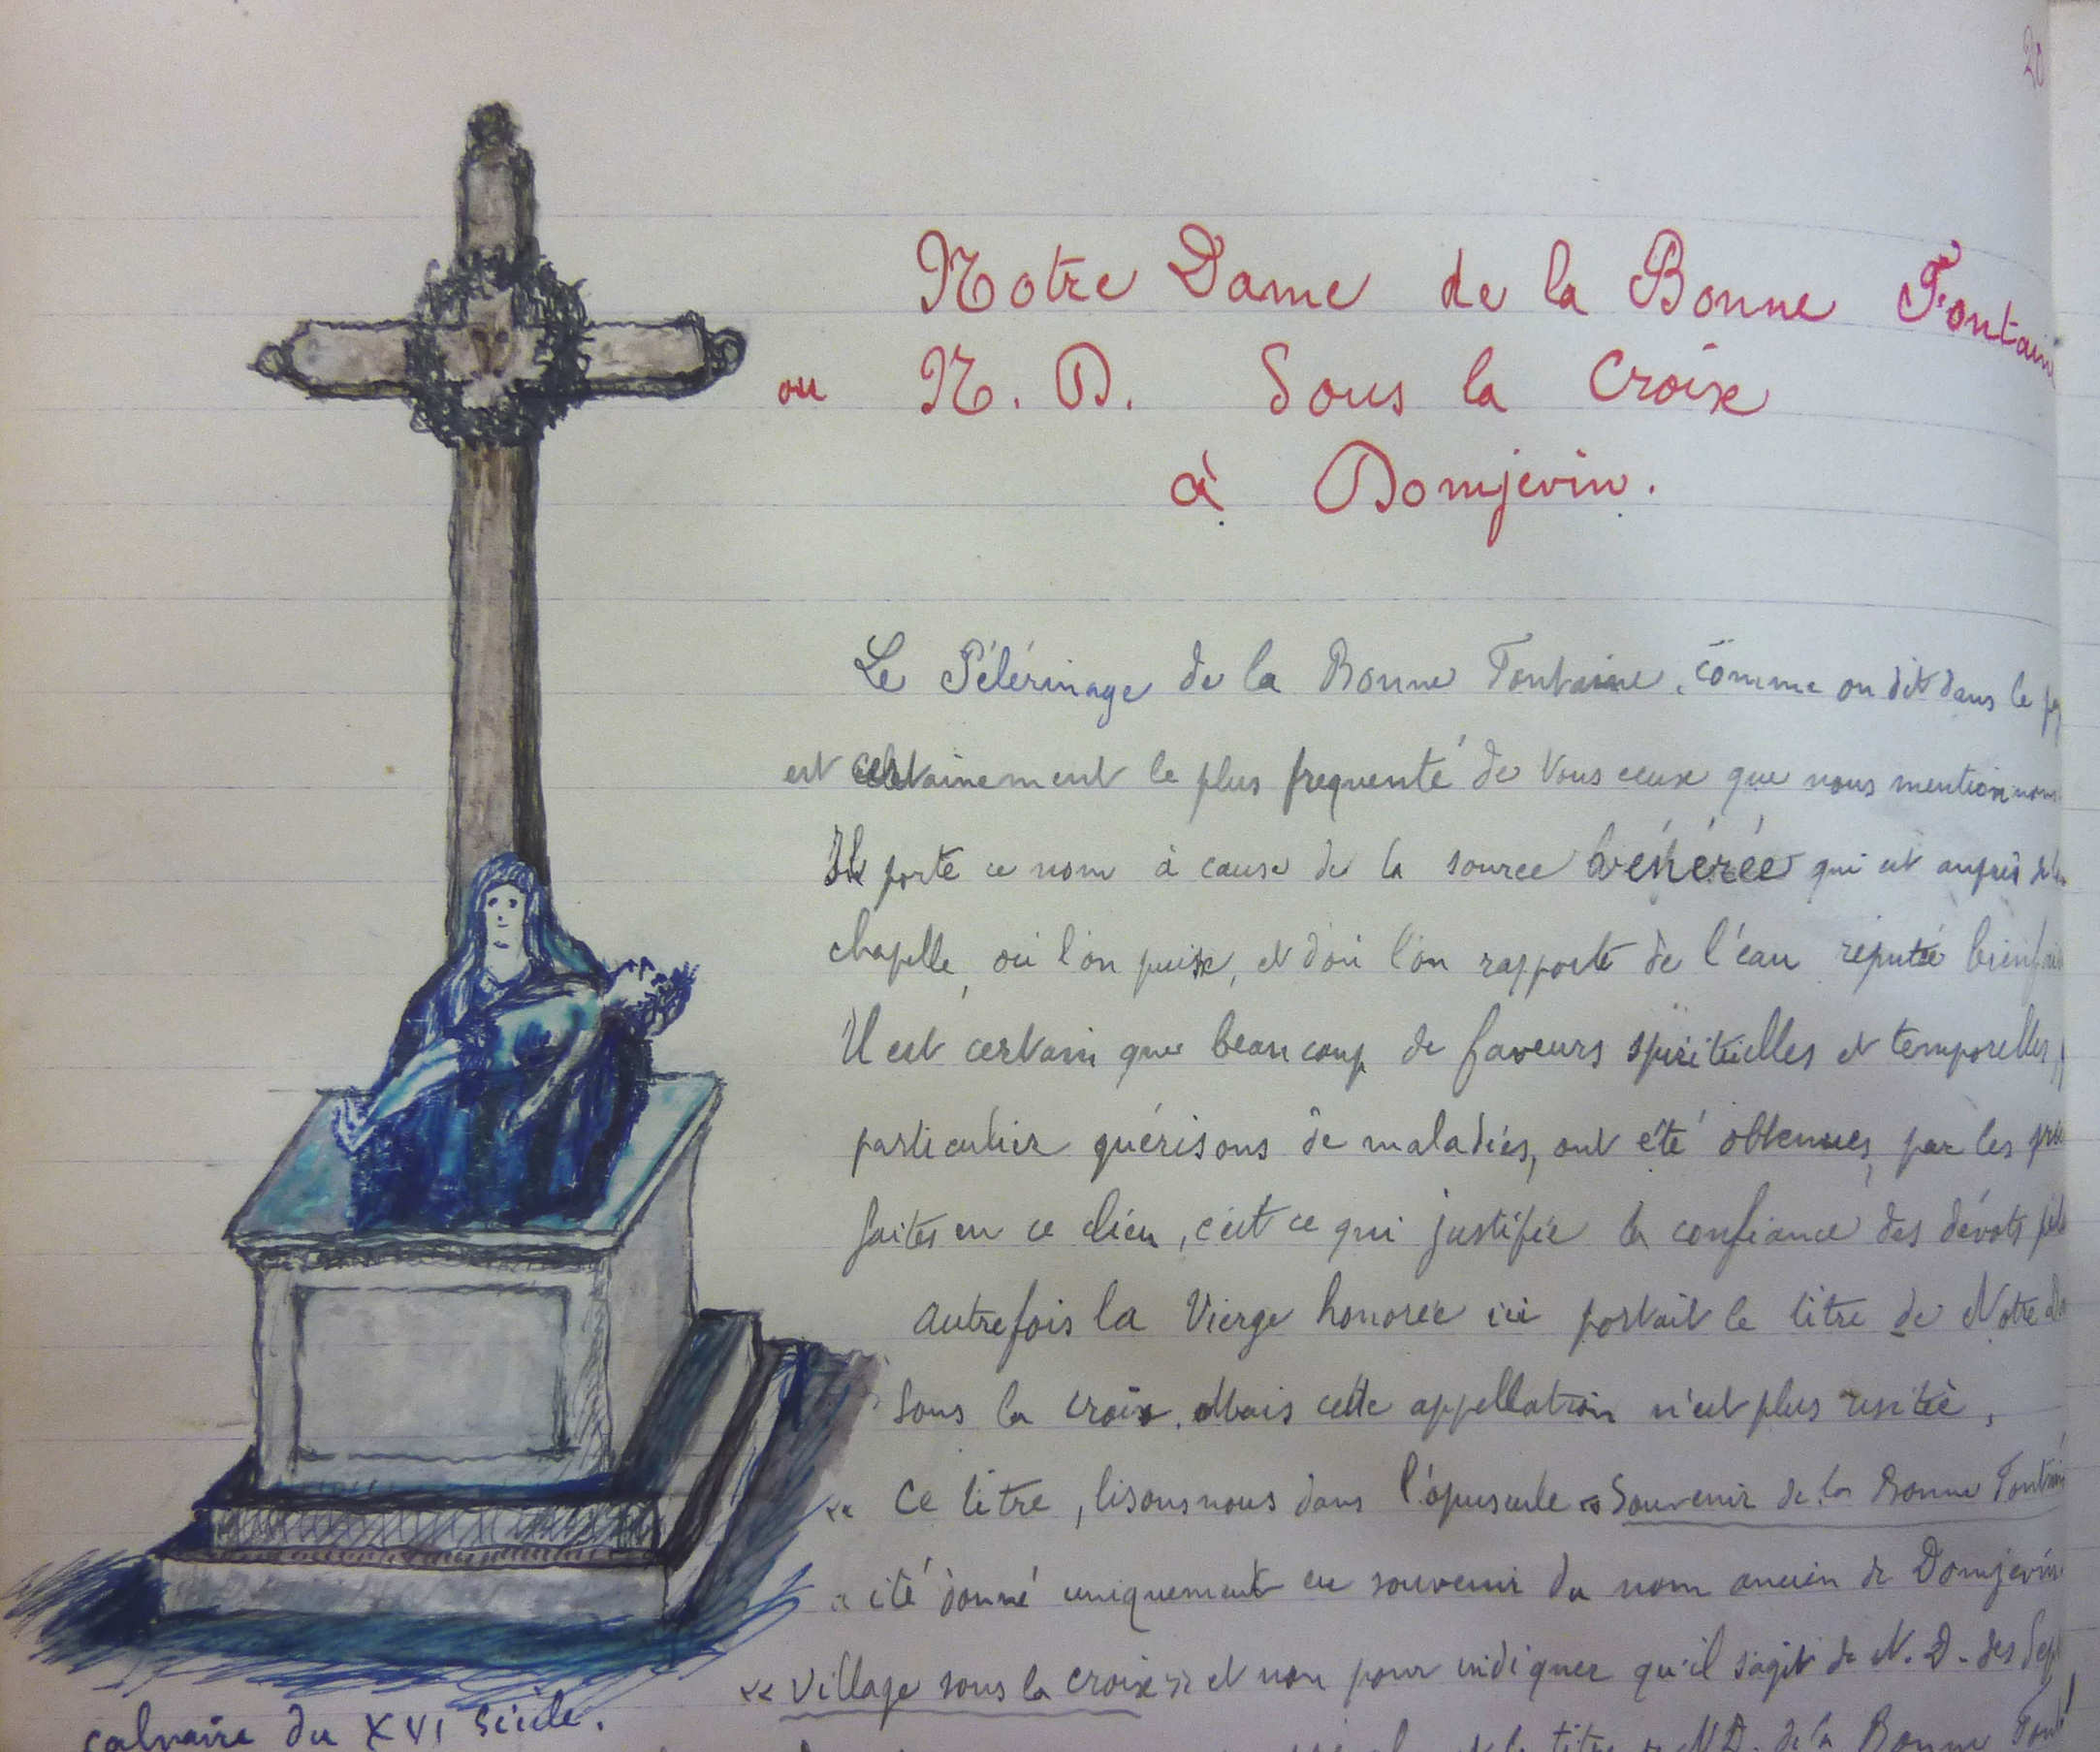 20
Notre Dame de la Bonne Fontain
ou N. D. Sous la Croix
à Domjevin.
Le Pélérinage de la Bonne Fontaine, comme on dit dans le
est certainement le plus frequenté de tous ceux que nous mentionnons
Il porte ce nom à cause de la source vénérée qui est auprès de la
chapelle, où l'on puise, et d'où l'on rapporte de l'eau réputée bienfais
Il est certain que beaucoup de faveurs spirituelles et temporelles,
particulier guérisons de maladies, ont été obtenues, par les priè
faites en ce lieu, c'est ce qui justifie la confiance des dévots pèle
Autrefois la Vierge honorée ici portait le titre de Notre Da
Sous la croix. Mais cette appellation n'est plus usitée,
« Ce titre, lisons nous dans l'opuscule « Souvenir de la Bonne Fontain
« été donné uniquement en souvenir du nom ancien de Domjevin
« Village sous la croix » et non pour indiquer qu'il s'agit de N. D. des Sept
le titre de N.D. de la Bonne Font
calvaire du XVI siècle.